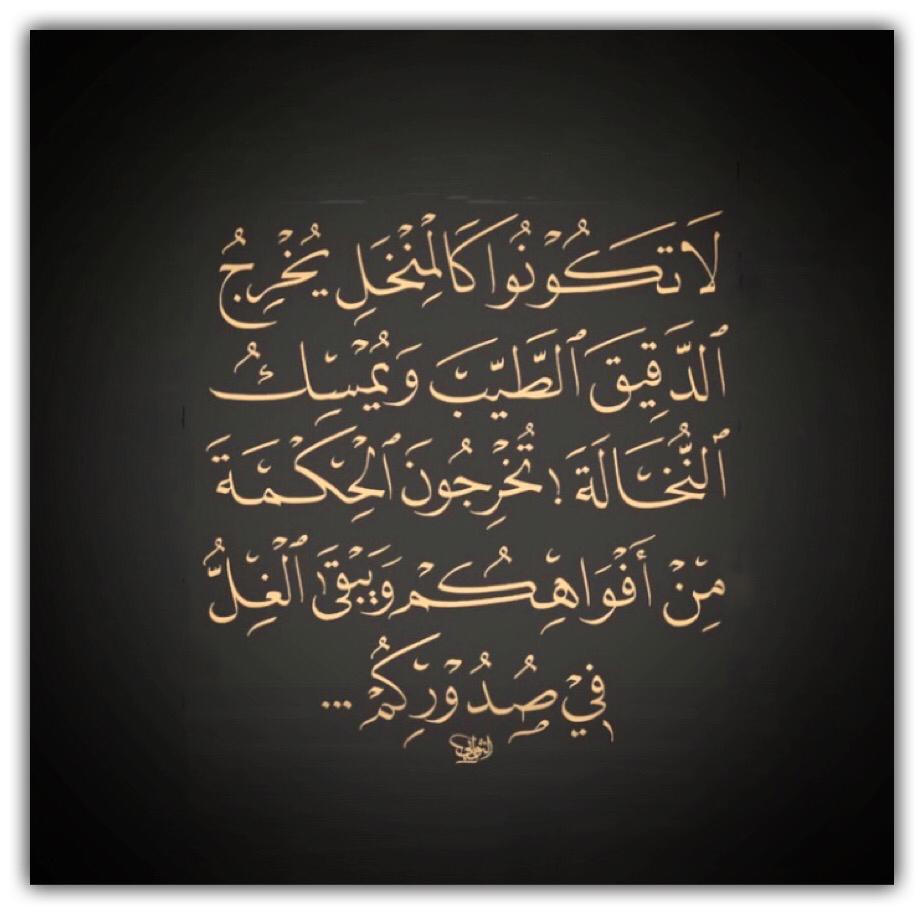 لَا تَكُونُوا كَالْمِنْخَلِ يُخْرِجُ
ٱلدَّقِيقَ ٱلطَّيِّبَ وَيُمْسِكُ
ٱلنُّخَالَةَ ! تُخْرِجُونَ ٱلْحِكْمَةَ
مِنْ أَفْوَاهِكُمْ وَيَبْقَىٰ ٱلْغِلُّ
فِيْ صُدُوْرِكُمْ ...